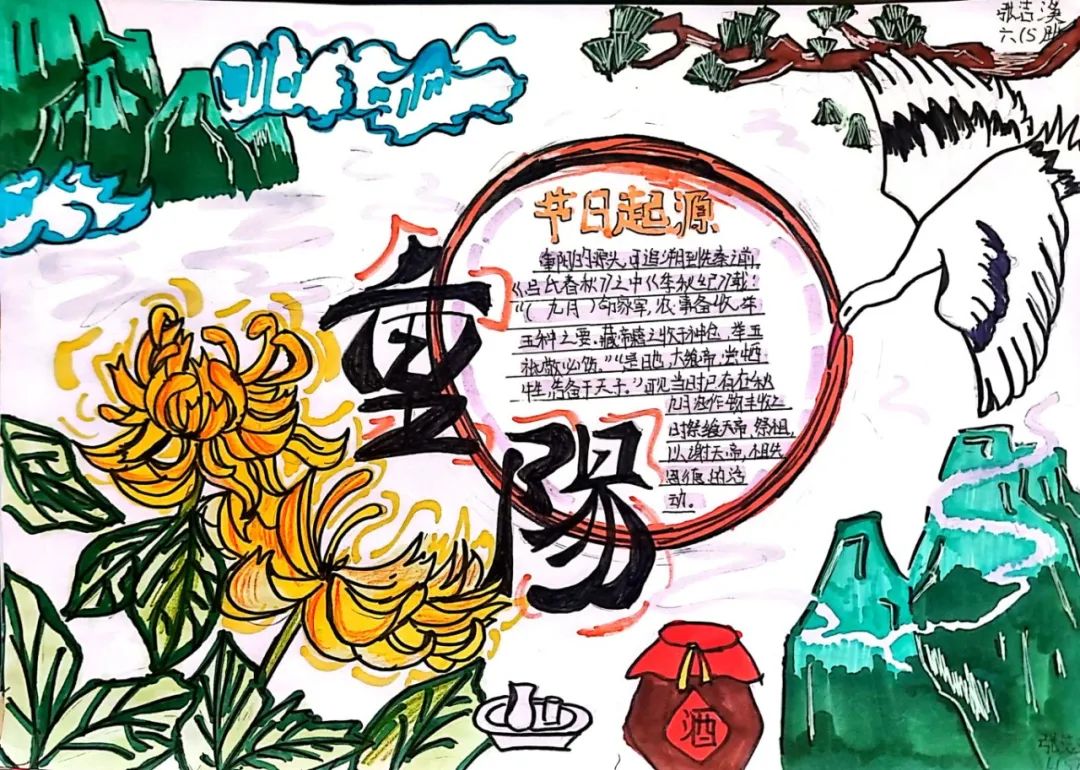 张喜涣
六(5)班
节日起源
重阳的源头,可追溯到先秦之前,
《吕氏春秋》之中《季秋纪》载:
"(九月)命家宰,农事备收,举
五种之要。藏帝籍之收于神仓,
祗敬必饬。""是日也,大飨帝,尝牺
牲,告备于天子。"可见当时已有在秋
九月农作物丰收之
时祭飨天帝、祭祖,
以谢天帝、祖先
恩德的活
动。
重
陽
酒